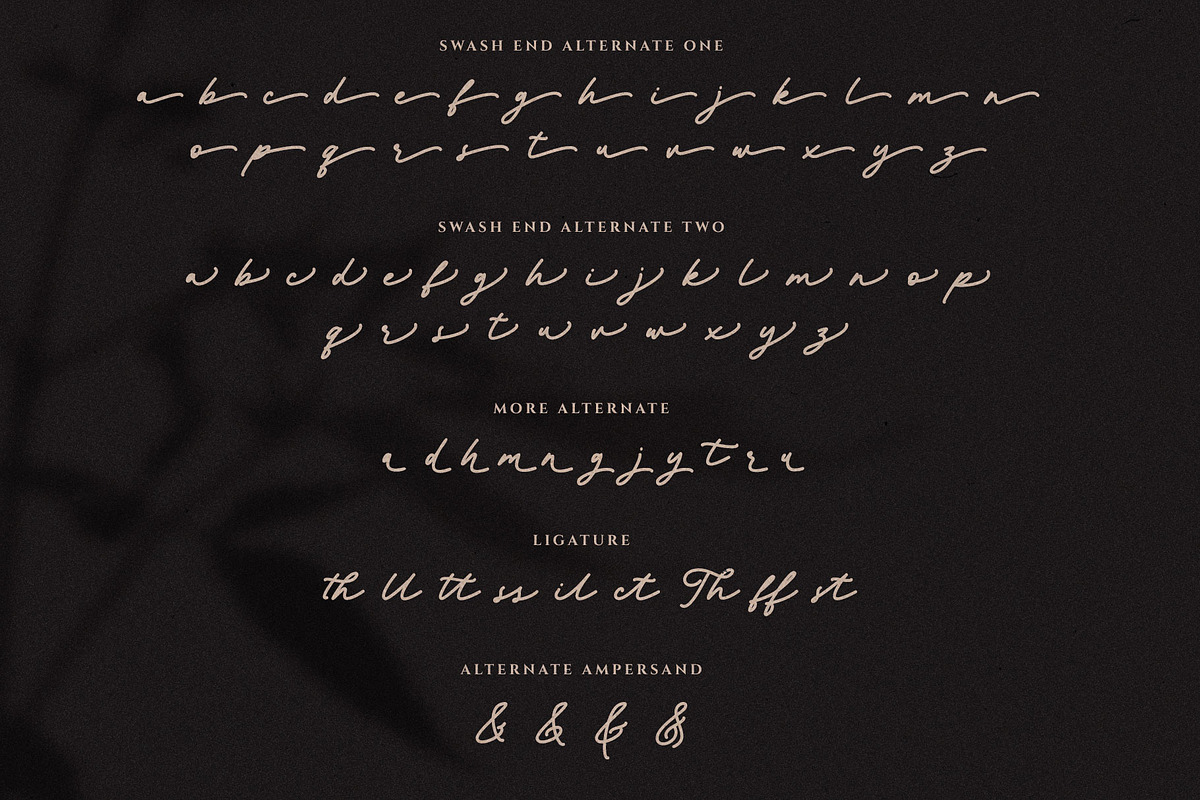 SWASH END ALTERNATE ONE
a b c d e f g h i j k l m n
o p q r s t u v w x y z
SWASH END ALTERNATE TWO
a b c d e f g h i j k l m n o p
q r s t u v w x y z
MORE ALTERNATE
a d h m n g j y t r u
LIGATURE
th ll tt ss il ct Th ff st
ALTERNATE AMPERSAND
& & & &